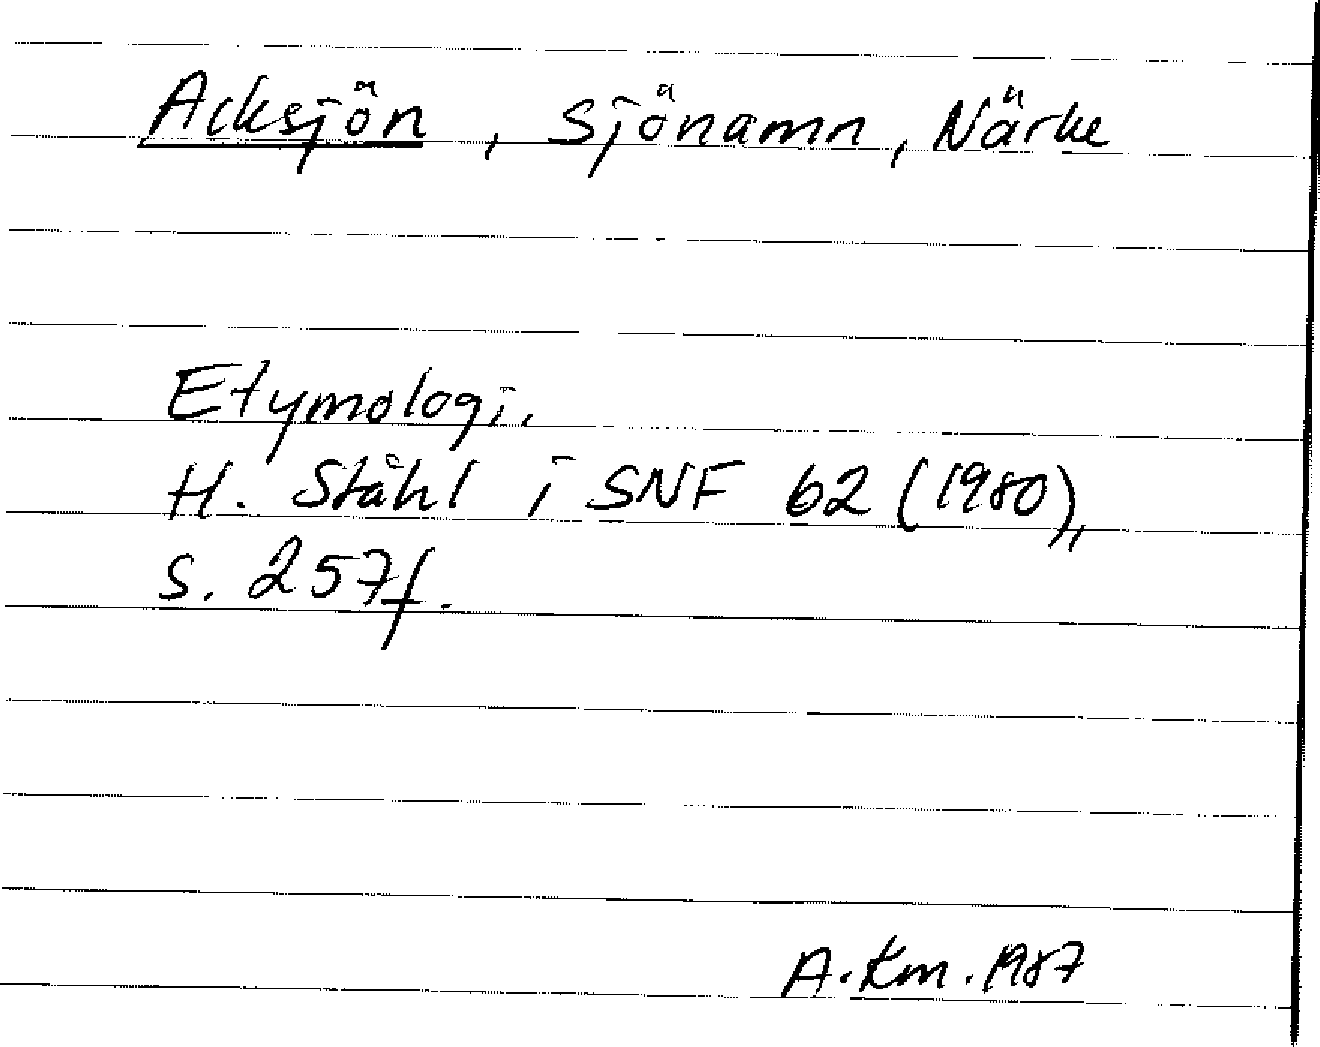 Acksjön, Sjönamn, Närke
Etymologi.
H. Ståhl i SNF 62 (1980),
s. 257f.
A.Km.1987